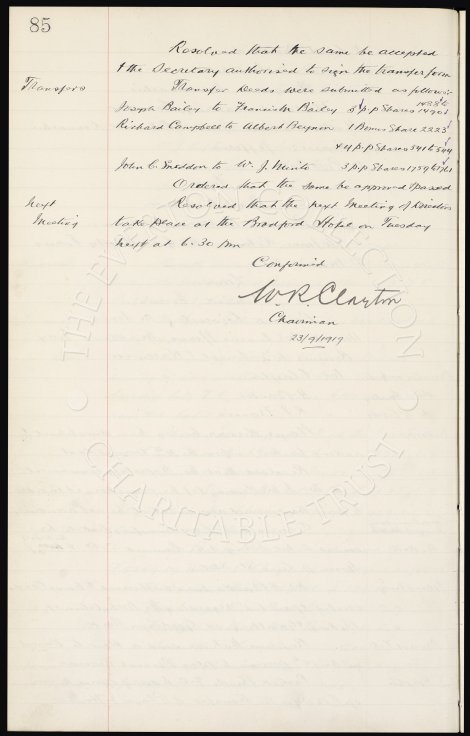 85
Resolved that the same be accepted
& the Secretary authorised to sign the transfer form
Transfers
Transfer Deeds were submitted as follows:-
Joseph Bailey to Bailey 5 p.p Shares
Richard Campbell to Albert Beynon 1 Bonus Share 2223
4 p.p Shares 341 to 344
John C. Sneddon to W. J. 3 p.p Shares 1759 to 1761
Ordered that the same be approved & passed
Next Meeting
Resolved that the next Meeting of Directors
take place at the Bradford Hotel on Tuesday
next at 6.30 pm
Confirmed
W. R. Clayton
Chairman
23/9/1919
THE EVERTON COLLECTION
CHARITABLE TRUST